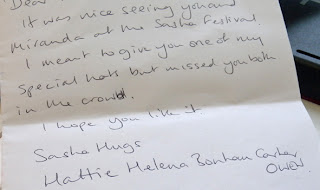 Dear
It was nice seeing you and
Miranda at the Sasha Festival.
I meant to give you one of my
special hats but missed you both
in the crowd.
I hope you like it
Sasha Hugs
Hattie Helena Bonham Carter
OWEN